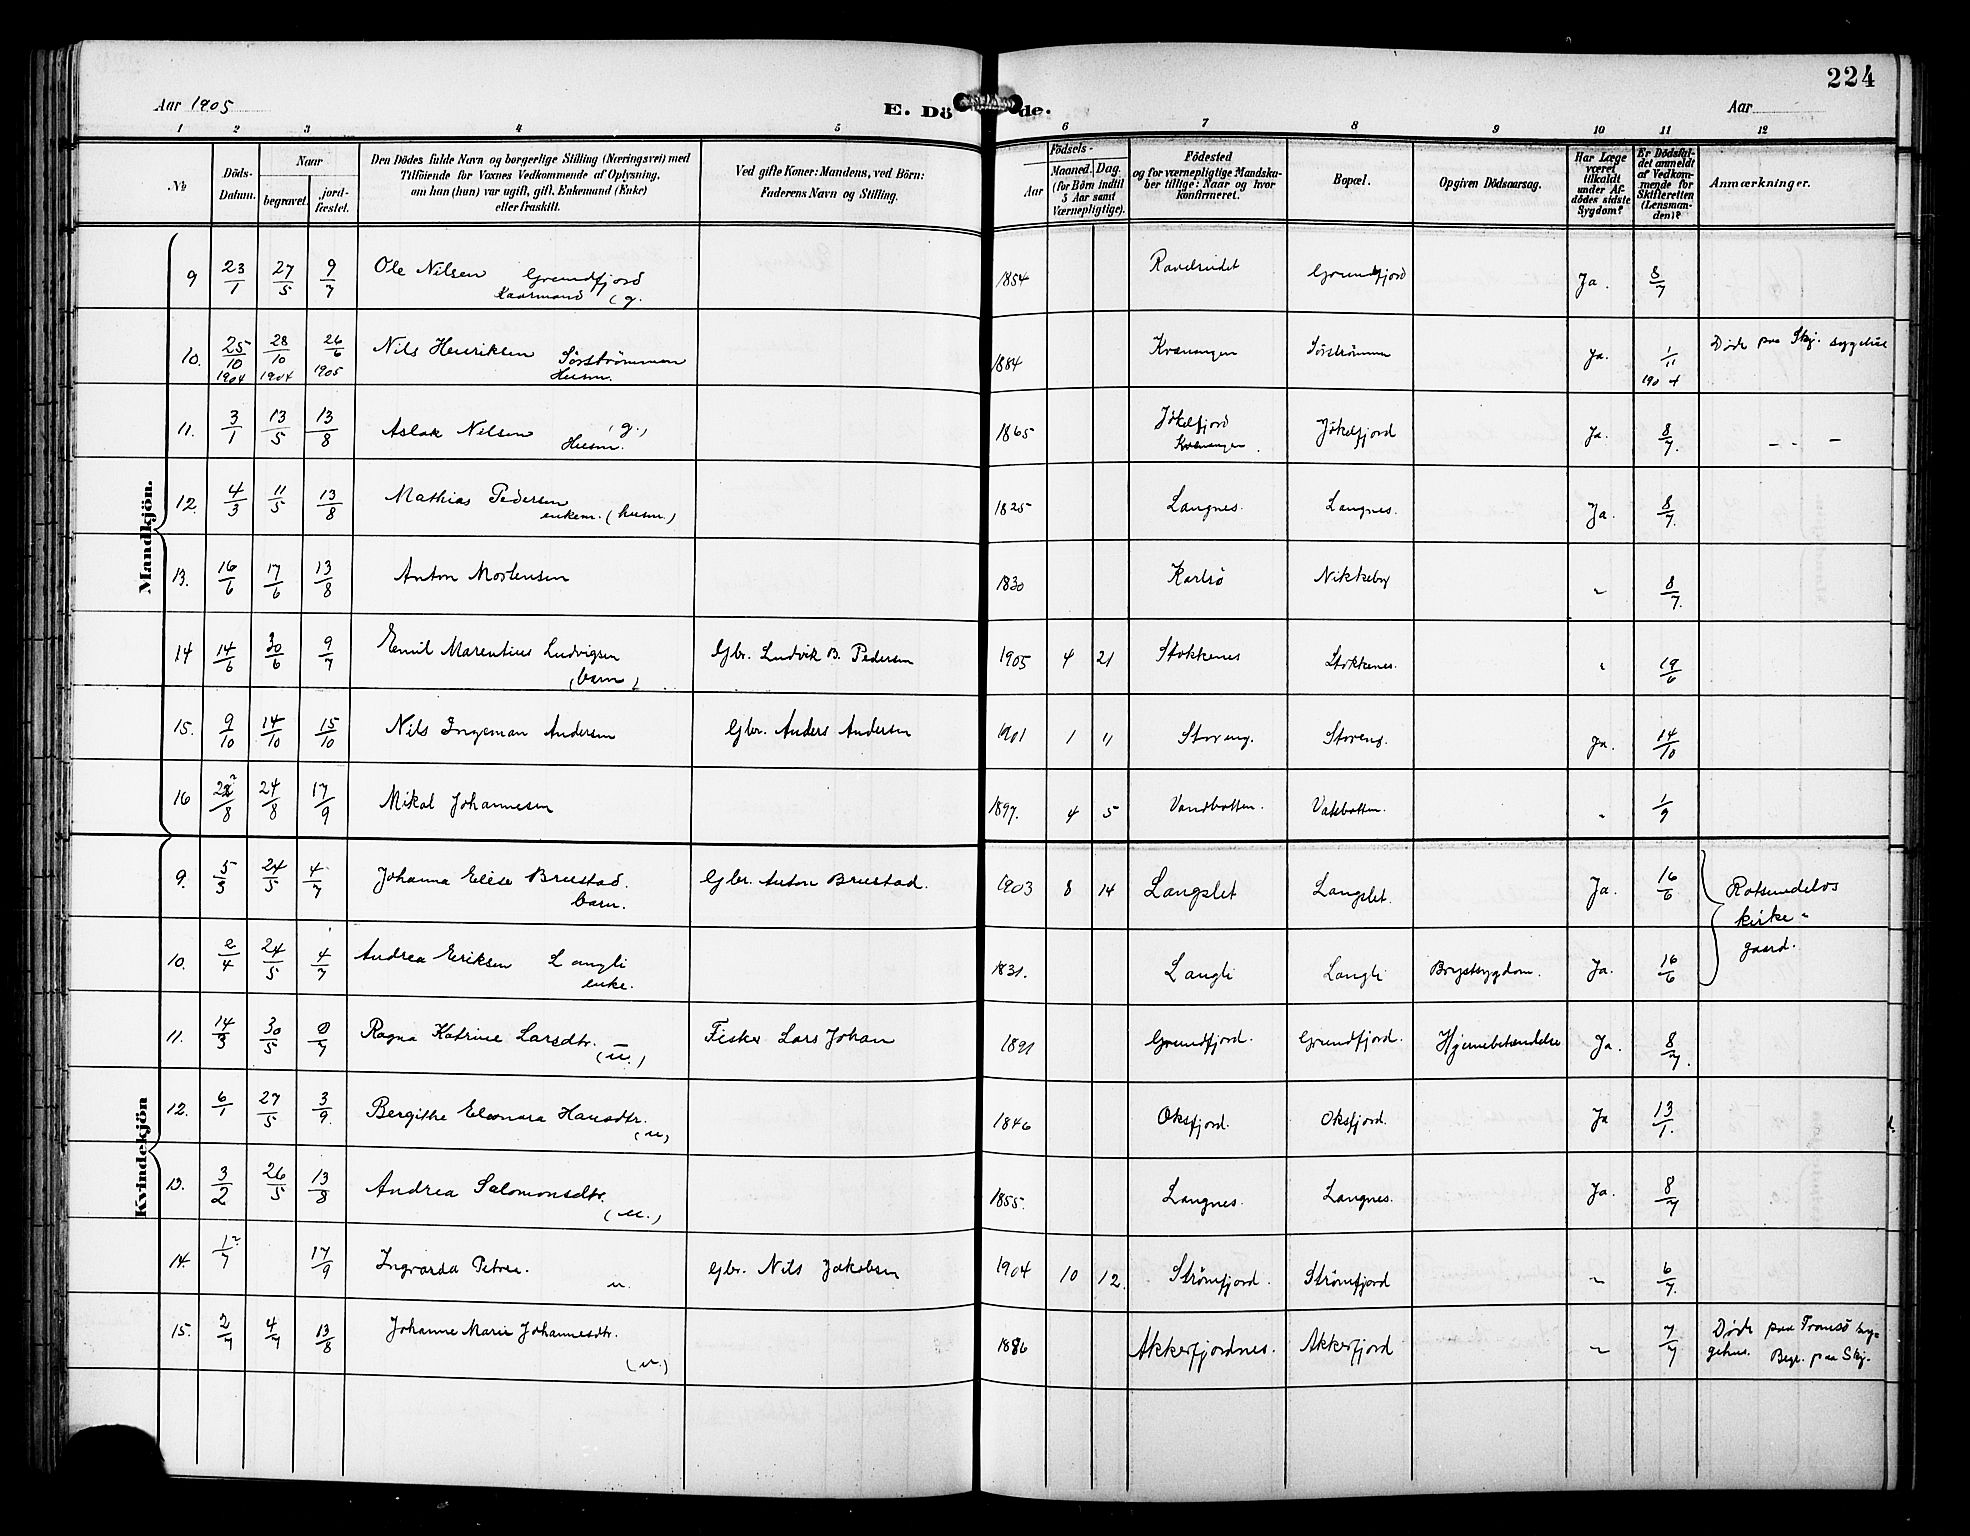 224
Aar 1905
E. Dö de.
Aar
1 2 3 4 5 6 7 8 9 10 11 12
No
Döds-Datum.
Naar
begravet.
jord-fæstet.
Den Dödes fulde Navn og borgerlige Stilling (Næringsvei) med
Tilföiende for Voxnes Vedkommende af Oplysning,
om han (hun) var ugift, gift, Enkemand (Enke)
eller fraskilt.
Ved gifte Koner: Mandens, ved Börn:
Faderens Navn og Stilling.
Födsels-
Aar
Maaned. Dag.
(for Börn indtil
5 Aar samt
Værnepligtige).
Födested
og for værnepligtige Mandska-
ber tillige: Naar og hvor
konfirmeret.
Bopæl.
Opgiven Dödsaarsag.
Har Læge
været
tilkaldt
under Af-
dödes sidste
Sygdom?
Er Dödsfal-
det anmeldt
af Vedkom-
mende for
Skifteretten
(Lensman-
den)?
Anmærkninger.
Mandkjön.
9 23/1 27/5 9/7 Ole Nilsen Grundfjord 1854 Grundfjord Ja. 8/7
Kaarmand (g.
10. 25/10 28/10 26/6 Nils Henriksen Sörströmmen 1884 Kvænangen Sörströmmen Ja. 1/11 Døde paa Skj. sygehus
1904 1904 1905 Husm. 1904
11. 3/1 13/5 13/8 Aslak Nilsen (g.) 1865 Jökelfjord Jökelfjord Ja. 8/7. – - –
Husm. Kvænangen.
12. 4/3 11/5 13/8 Mathias Pedersen 1825 Langnes. Langnes. Ja. 8/7.
enkem. (husm.)
13. 16/6 17/6 13/8 Anton Mortensen 1830 Karlsö Nikkeby " 8/7.
14 14/6 30/6 9/7 Emil Marentius Ludvigsen Gbr. Ludvik B. Pedersen 1905 4 21 Stokkenes Stokkenes. " 19/6
(barn)
15. 9/10 14/10 15/10 Nils Ingeman Andersen Gbr. Anders Andersen 1901 1 11 Storeng. Storeng. Ja. 14/10
16 22/8 24/8 17/9 Mikal Johannesen 1897. 4 5 Vandbotten. " 1/9
Kvindekjön
9. 5/3 24/5 4/7 Johanna Elise Brustad. Gbr. Anton Brustad. 1903 8 14 Langslet Langslet. Ja. 16/6 Rotsundelvs
barn. kirke-
gaard.
10. 2/4 24/5 4/7 Andrea Eriksen Langli 1831. Langli Langli Brystsygdom. Ja. 16/6
enke.
11. 14/3 30/5 9/7 Ragna Katrine Larsdtr. Fisker Lars Johan 1891 Grundfjord. Grundfjord. Hjernebetændelse Ja. 8/7.
(u.)
12. 6/1 27/5 3/9. Bergithe Eleonora Hansdtr. 1846 Oksfjord. Oksfjord. Ja 13/1.
(u)
13. 3/2 26/5 13/8 Andrea Salomonsdtr. 1855. Langnes. Langnes. Ja. 8/7
(u.)
14. 1/7 17/9 Ingvarda Petrea. Gbr. Nils Jakobsen 1904 10 12. Strömfjord. Strömfjord " 6/7.
u.
15. 2/7 4/7 13/8 Johanne Marie Johannesdtr. 1886 Akkerfjordnes. Akkerfjord " 7/7 Døde paa Tromsö syge-
(u.) gehus. Begr. paa Skj.